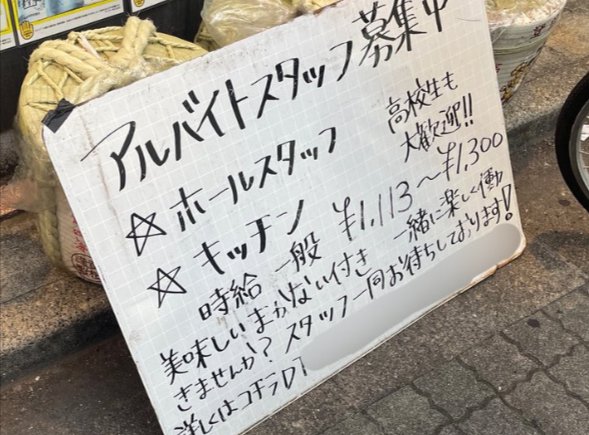 アルバイトスタッフ募集中
☆ホールスタッフ
高校生も
大歓迎!!
☆キッチン
時給 一般 ¥1,113〜¥1,300
美味しいまかない付き 一緒に楽しく働
きませんか?スタッフ一同お待ちしております!
詳しくはコチラ